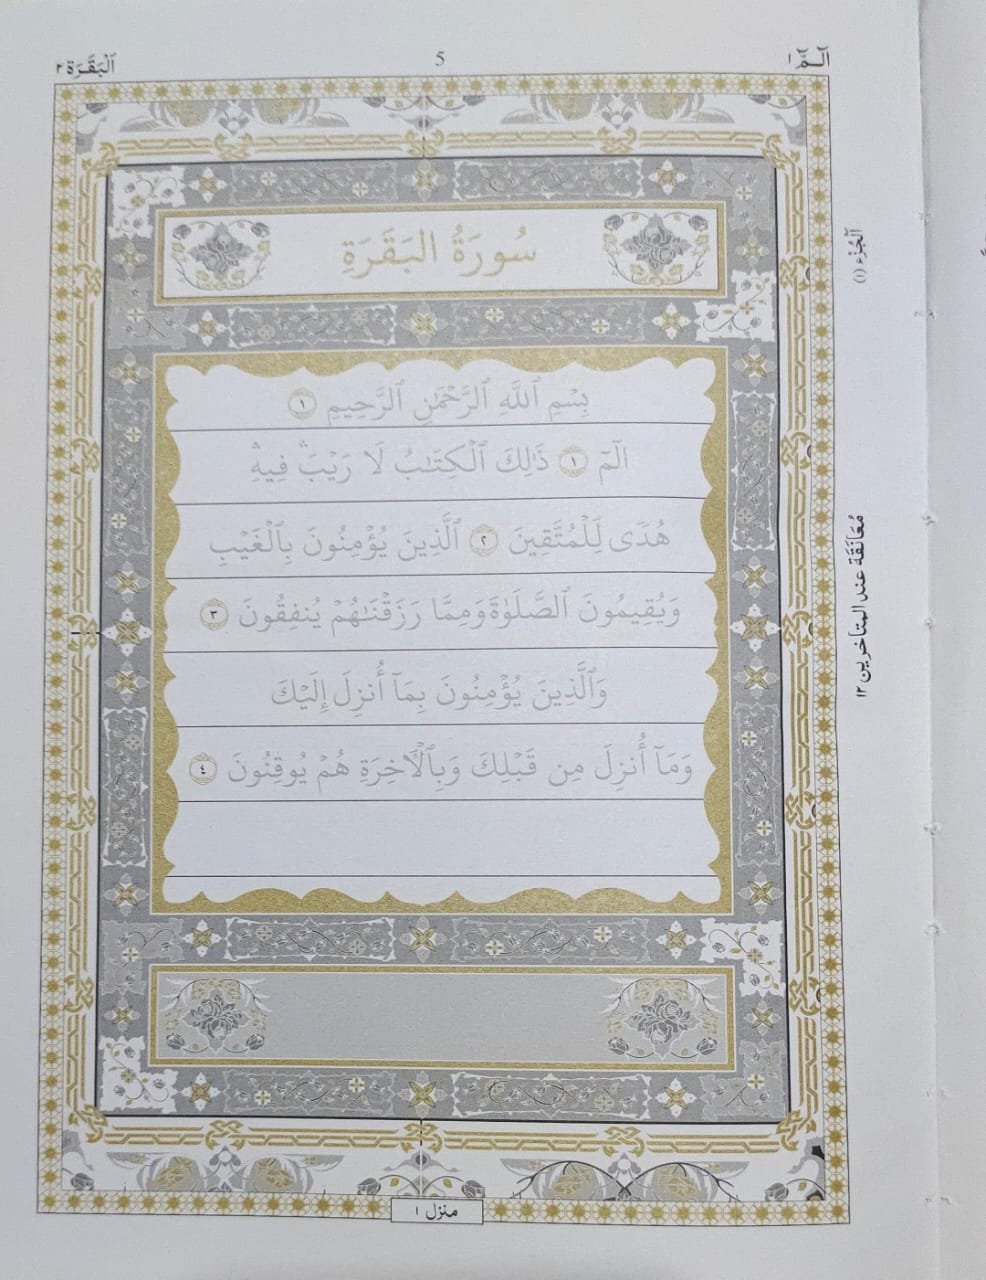 الٓـمّٓ ١
5
اَلْبَقَرَة ٢
سُورَةُ البَقَرَةِ
بِسْمِ ٱللَّهِ ٱلرَّحْمَٰنِ ٱلرَّحِيمِ ١
الٓمٓ ١ ذَٰلِكَ ٱلْكِتَٰبُ لَا رَيْبَ ۛ فِيهِ ۛ
هُدًى لِّلْمُتَّقِينَ ٢ ٱلَّذِينَ يُؤْمِنُونَ بِٱلْغَيْبِ
وَيُقِيمُونَ ٱلصَّلَوٰةَ وَمِمَّا رَزَقْنَٰهُمْ يُنفِقُونَ ٣
وَٱلَّذِينَ يُؤْمِنُونَ بِمَآ أُنزِلَ إِلَيْكَ
وَمَآ أُنزِلَ مِن قَبْلِكَ وَبِٱلْأَخِرَةِ هُمْ يُوقِنُونَ ٤
اَلْجُزْء (١)
مُعَانَقَة عند المتأخرين ١٢
منزل ١